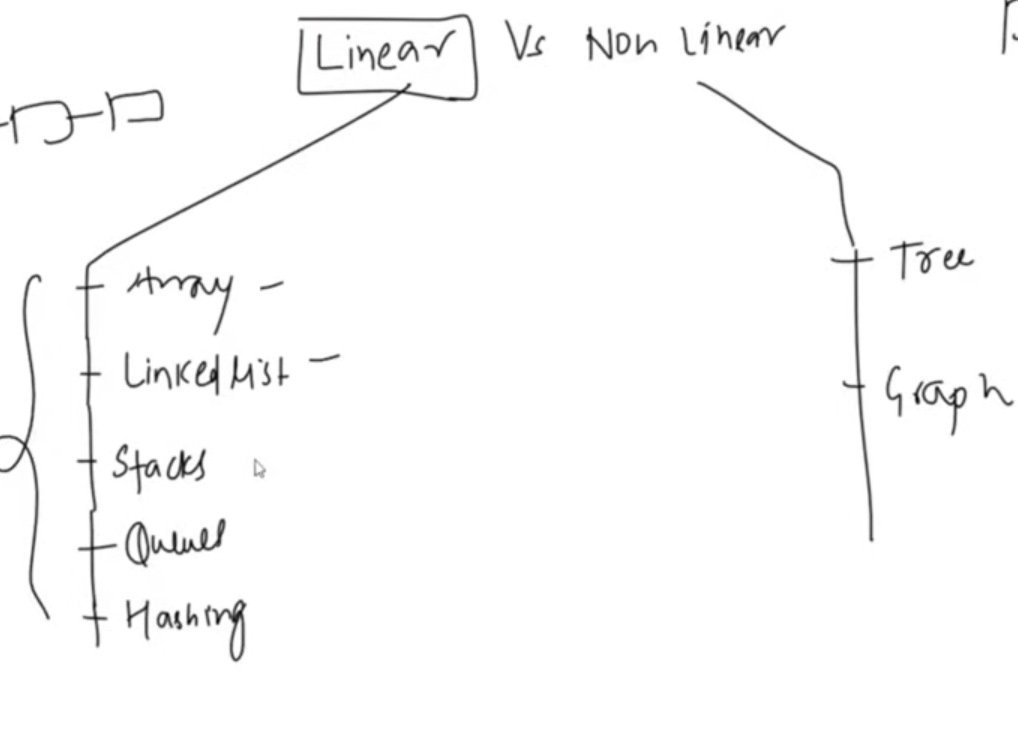 Linear Vs Non Linear
Array -
Linked List -
Stacks
Queues
Hashing
Tree
Graph